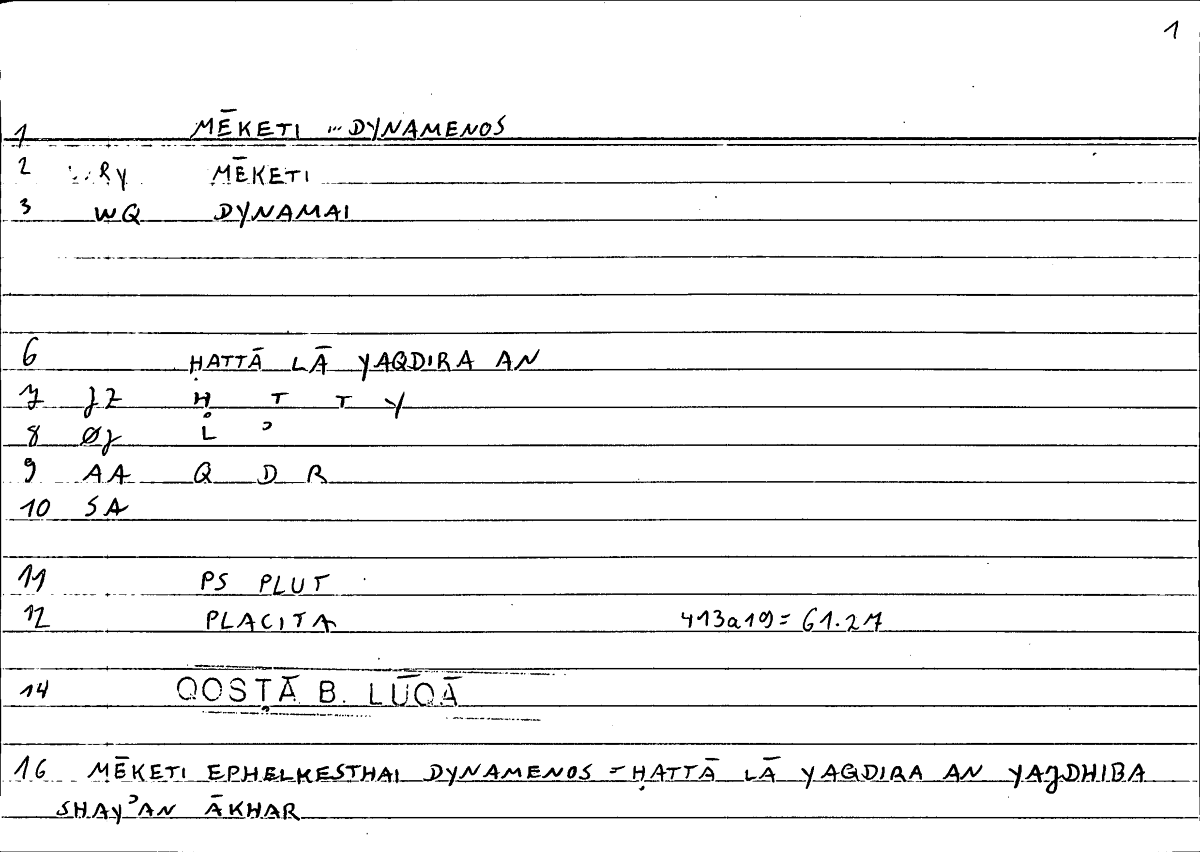 1
1 MĒKETI ... DYNAMENOS
2 RY MĒKETI
3 WQ DYNAMAI
6 ḤATTĀ LĀ YAQDIRA AN
7 JZ Ḥ T T Y
8 ØJ L ʾ
9 AA Q D R
10 SA
11 PS PLUT
12 PLACITA 413a19 = 61.27
14 QOSṬĀ B. LŪQĀ
16 MĒKETI EPHELKESTHAI DYNAMENOS = ḤATTĀ LĀ YAQDIRA AN YAJDHIBA
SHAYʾAN ĀKHAR